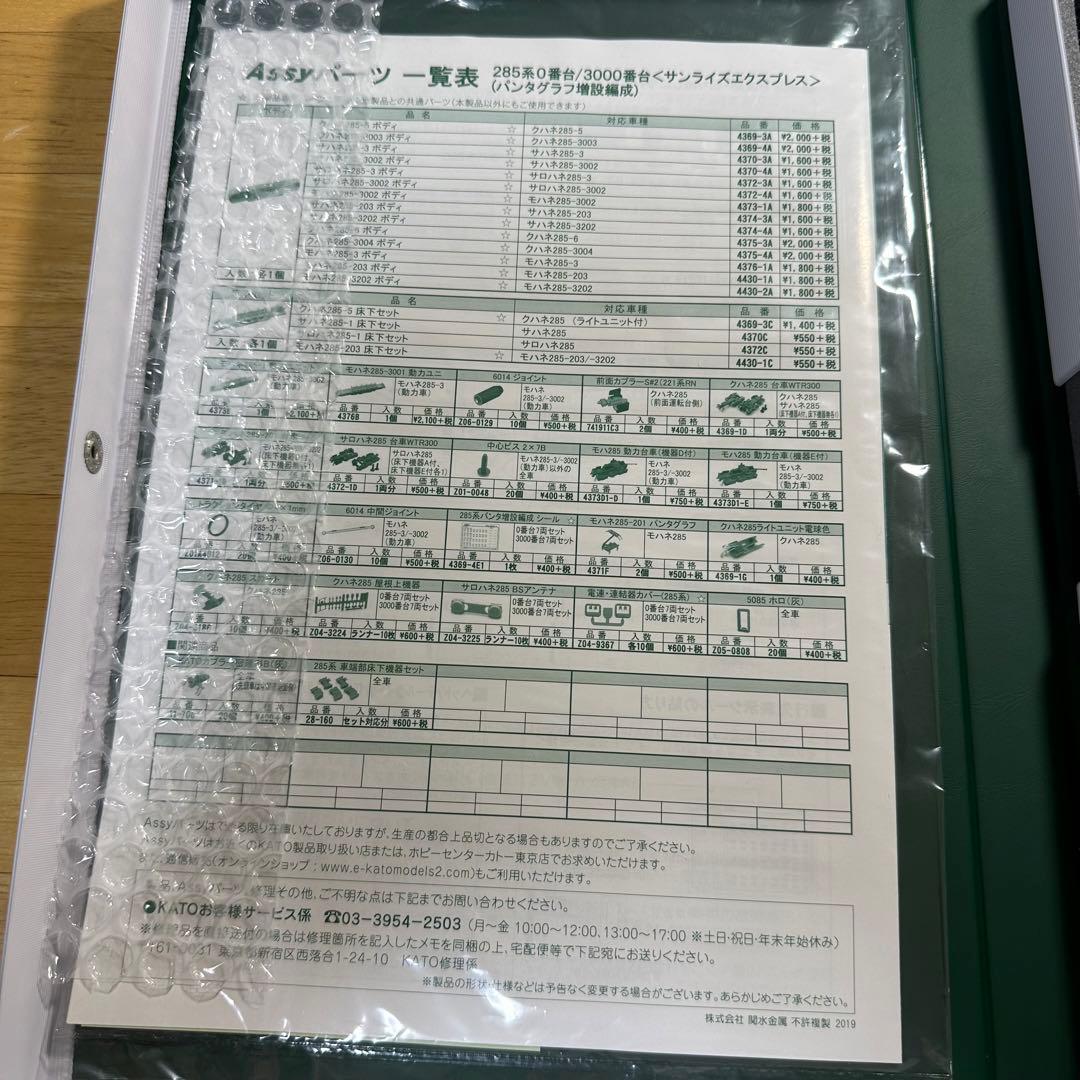 Assyパーツ 一覧表 285系0番台/3000番台<サンライズエクスプレス>
(パンタグラフ増設編成)
製品との共通パーツ(本製品以外にもご使用できます)
品 名 対応車種 品 番 価 格
ボディ ☆ クハネ285-5 4369-3A ¥2,000+税
3003 ボディ ☆ クハネ285-3003 4369-4A ¥2,000+税
-3 ボディ ☆ サハネ285-3 4370-3A ¥1,600+税
3002 ボディ ☆ サハネ285-3002 4370-4A ¥1,600+税
サロハネ285-3 ボディ ☆ サロハネ285-3 4372-3A ¥1,600+税
サロハネ285-3002 ボディ ☆ サロハネ285-3002 4372-4A ¥1,600+税
285-3002 ボディ ☆ モハネ285-3002 4373-1A ¥1,800+税
285-203 ボディ ☆ サハネ285-203 4374-3A ¥1,600+税
285-3202 ボディ ☆ サハネ285-3202 4374-4A ¥1,600+税
ボディ ☆ クハネ285-6 4375-3A ¥2,000+税
クハネ285-3004 ボディ ☆ クハネ285-3004 4375-4A ¥2,000+税
モハネ285-3 ボディ ☆ モハネ285-3 4376-1A ¥1,800+税
モハネ285-203 ボディ ☆ モハネ285-203 4430-1A ¥1,800+税
モハネ285-3202 ボディ ☆ モハネ285-3202 4430-2A ¥1,800+税
入 数 各1個
品 名 対応車種 品 番 価 格
クハネ285-5 床下セット ☆ クハネ285 (ライトユニット付) 4369-3C ¥1,400+税
サハネ285-1 床下セット サハネ285 4370C ¥550+税
サロハネ285-1 床下セット サロハネ285 4372C ¥550+税
モハネ285-203 床下セット ☆ モハネ285-203/-3202 4430-1C ¥550+税
入 数 各1個
モハネ285-3001 動力ユニ 6014 ジョイント 前面カプラーS#2(221系RN クハネ285 台車WTR300
モハネ285-3 (動力車) モハネ 285-3/-3002 (動力車) クハネ285 (前面運転台側) クハネ285 サハネ285
4373B 1個 ¥2,100+税 4376B 1個 ¥2,100+税 Z06-0129 10個 ¥500+税 741911C3 2個 ¥400+税 4369-1D 1両分 ¥500+税
サロハネ285 台車WTR300 中心ビス 2×7B モハ285 動力台車(機器D付) モハ285 動力台車(機器E付)
サロハネ285 (床下機器A付、床下機器E付各1) モハネ 285-3/-3002 (動力車)以外の 全車 モハネ 285-3/-3002 (動力車) モハネ 285-3/-3002 (動力車)
4372-1D 1両分 ¥500+税 Z01-0048 20個 ¥400+税 4373D1-D 1個 ¥750+税 4373D1-E 1個 ¥750+税
6014 中間ジョイント 285系パンタ増設編成 シール ☆ モハネ285-201 パンタグラフ クハネ285ライトユニット電球色
モハネ 285-3/-3002 (動力車) 0番台7両セット 3000番台7両セット モハネ285 クハネ285
Z06-0130 10個 ¥500+税 4369-4E1 1枚 ¥400+税 4371F 2個 ¥500+税 4369-1G 1個 ¥400+税
クハネ285 スカート クハネ285 屋根上機器 サロハネ285 BSアンテナ 電連・連結器カバー(285系) ☆ 5085 ホロ(灰)
0番台7両セット 3000番台7両セット 0番台7両セット 3000番台7両セット 0番台7両セット 3000番台7両セット 全車
Z04-3224 ランナー10枚 ¥600+税 Z04-3225 ランナー10枚 ¥400+税 Z04-9367 各10個 ¥600+税 Z05-0808 20個 ¥400+税
■関連商品
285系 車端部床下機器セット
全車
28-160 セット対応分 ¥600+税
Assyパーツはできる限り在庫いたしておりますが、生産の都合上品切となる場合もありますのでご了承ください。
Assyパーツはお近くのKATO製品取り扱い店または、ホビーセンターカトー東京店でお求めいただけます。
また通信販売(オンラインショップ:www.e-katomodels2.com)もご利用いただけます。
製品・Assyパーツ、修理その他、ご不明な点は下記までお問い合わせください。
●KATOお客様サービス係 ☎03-3954-2503 (月~金 10:00~12:00、13:00~17:00 ※土日・祝日・年末年始休み)
※修理品を直接送付の場合は修理箇所を記入したメモを同梱の上、宅配便等で下記宛にお送りください。
〒161-0031 東京都新宿区西落合1-24-10 KATO修理係
※製品の形状・仕様などは予告なく変更する場合がございます。あらかじめご了承ください。
株式会社 関水金属 不許複製 2019